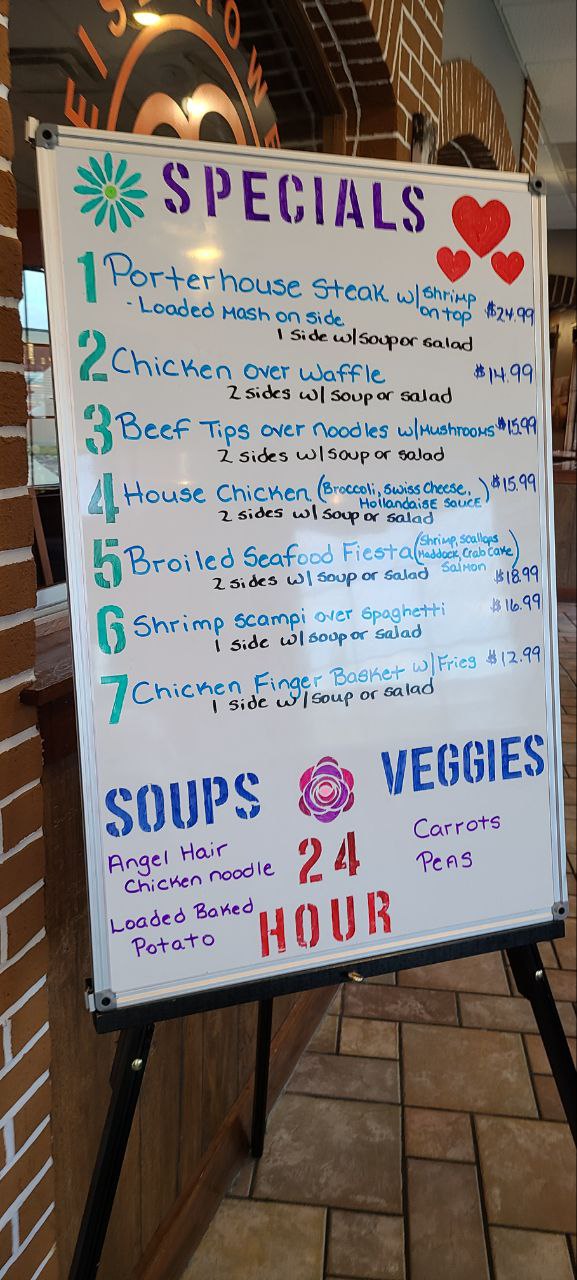 EISENHOWE
SPECIALS
1 Porterhouse Steak w/Shrimp on top $24.99
- Loaded Mash on side
1 side w/soup or salad
2 Chicken over Waffle $14.99
2 sides w/ soup or salad
3 Beef Tips over noodles w/Mushrooms $15.99
2 sides w/ soup or salad
4 House Chicken (Broccoli, Swiss Cheese, Hollandaise Sauce) $15.99
2 sides w/ soup or salad
5 Broiled Seafood Fiesta (Shrimp, scallops Haddock, Crab Cake) Salmon
2 sides w/ soup or salad $18.99
6 Shrimp scampi over Spaghetti $16.99
1 side w/soup or salad
7 Chicken Finger Basket w/Fries $12.99
1 side w/soup or salad
SOUPS
Angel Hair
Chicken noodle
Loaded Baked
Potato
24
HOUR
VEGGIES
Carrots
Peas